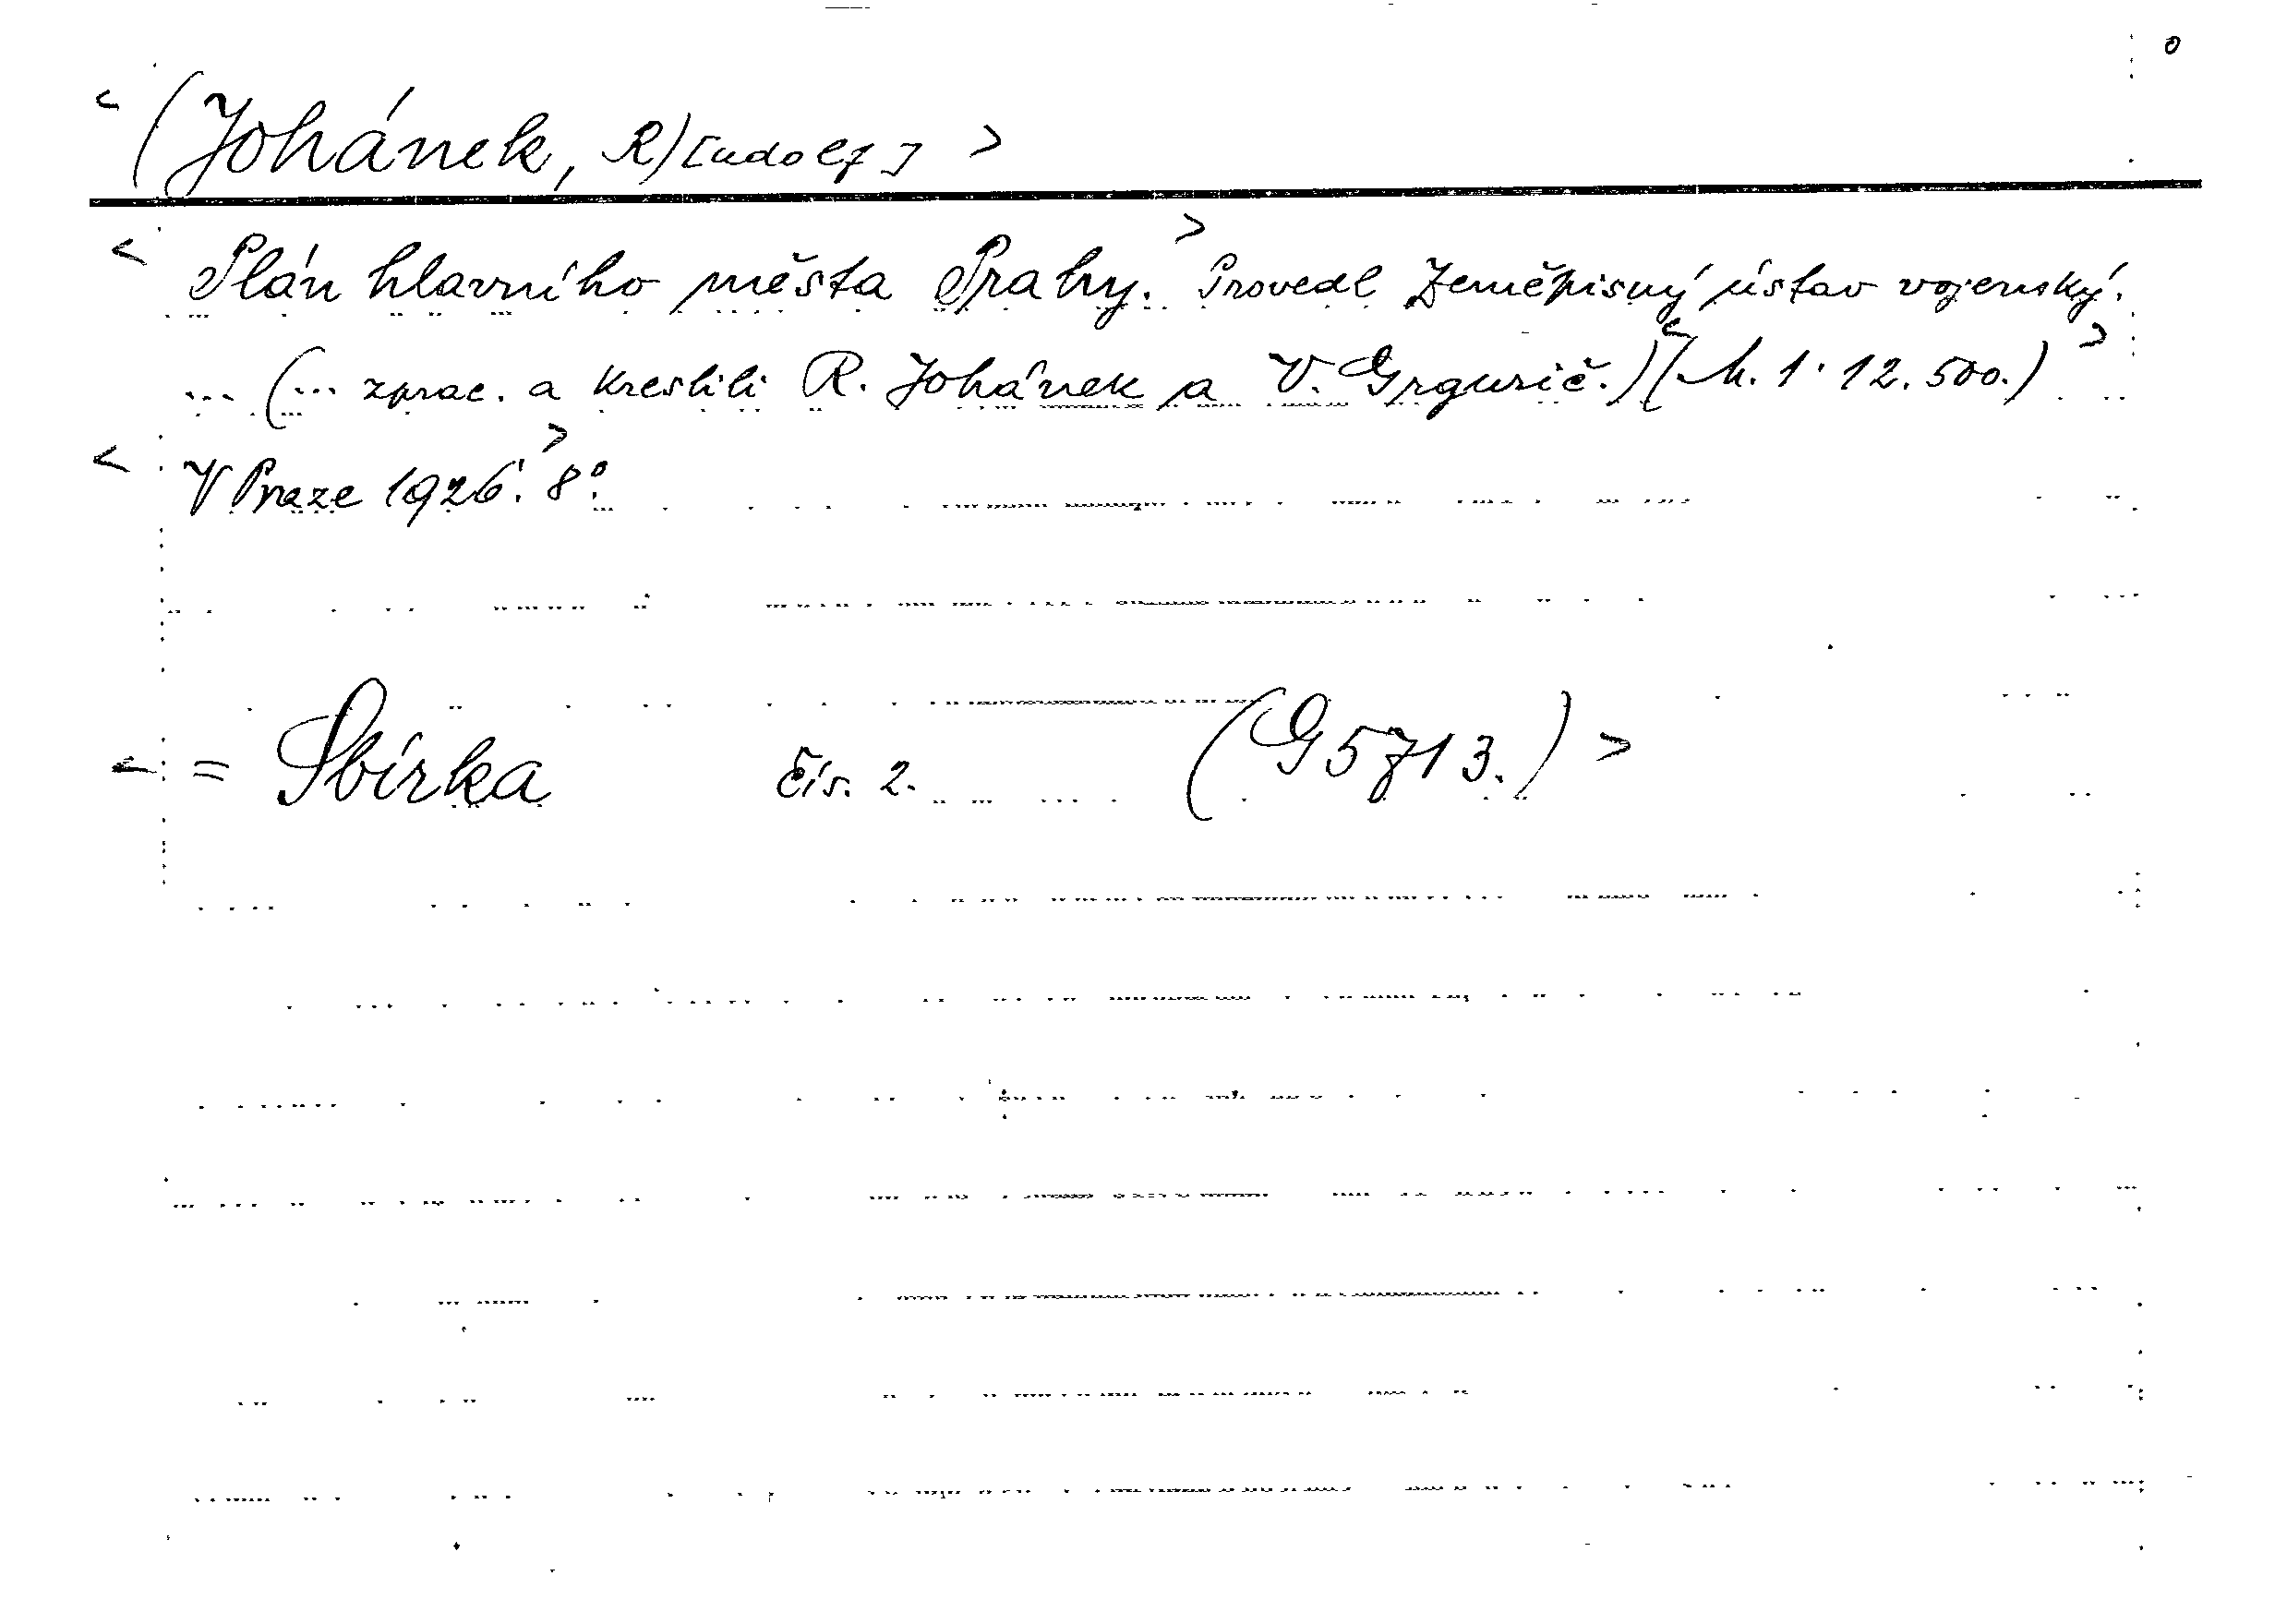 < (Johánek, R)[udolf] >
< Plán hlavního města Prahy. > Provedl Zeměpisný ústav vojenský.
... (... zprac. a kreslili R. Johánek a V. Grgurič.) < (M. 1:12.500.) >
< V Praze 1926. > 8°.
< = Sbírka Čís. 2. (G 5713.) >